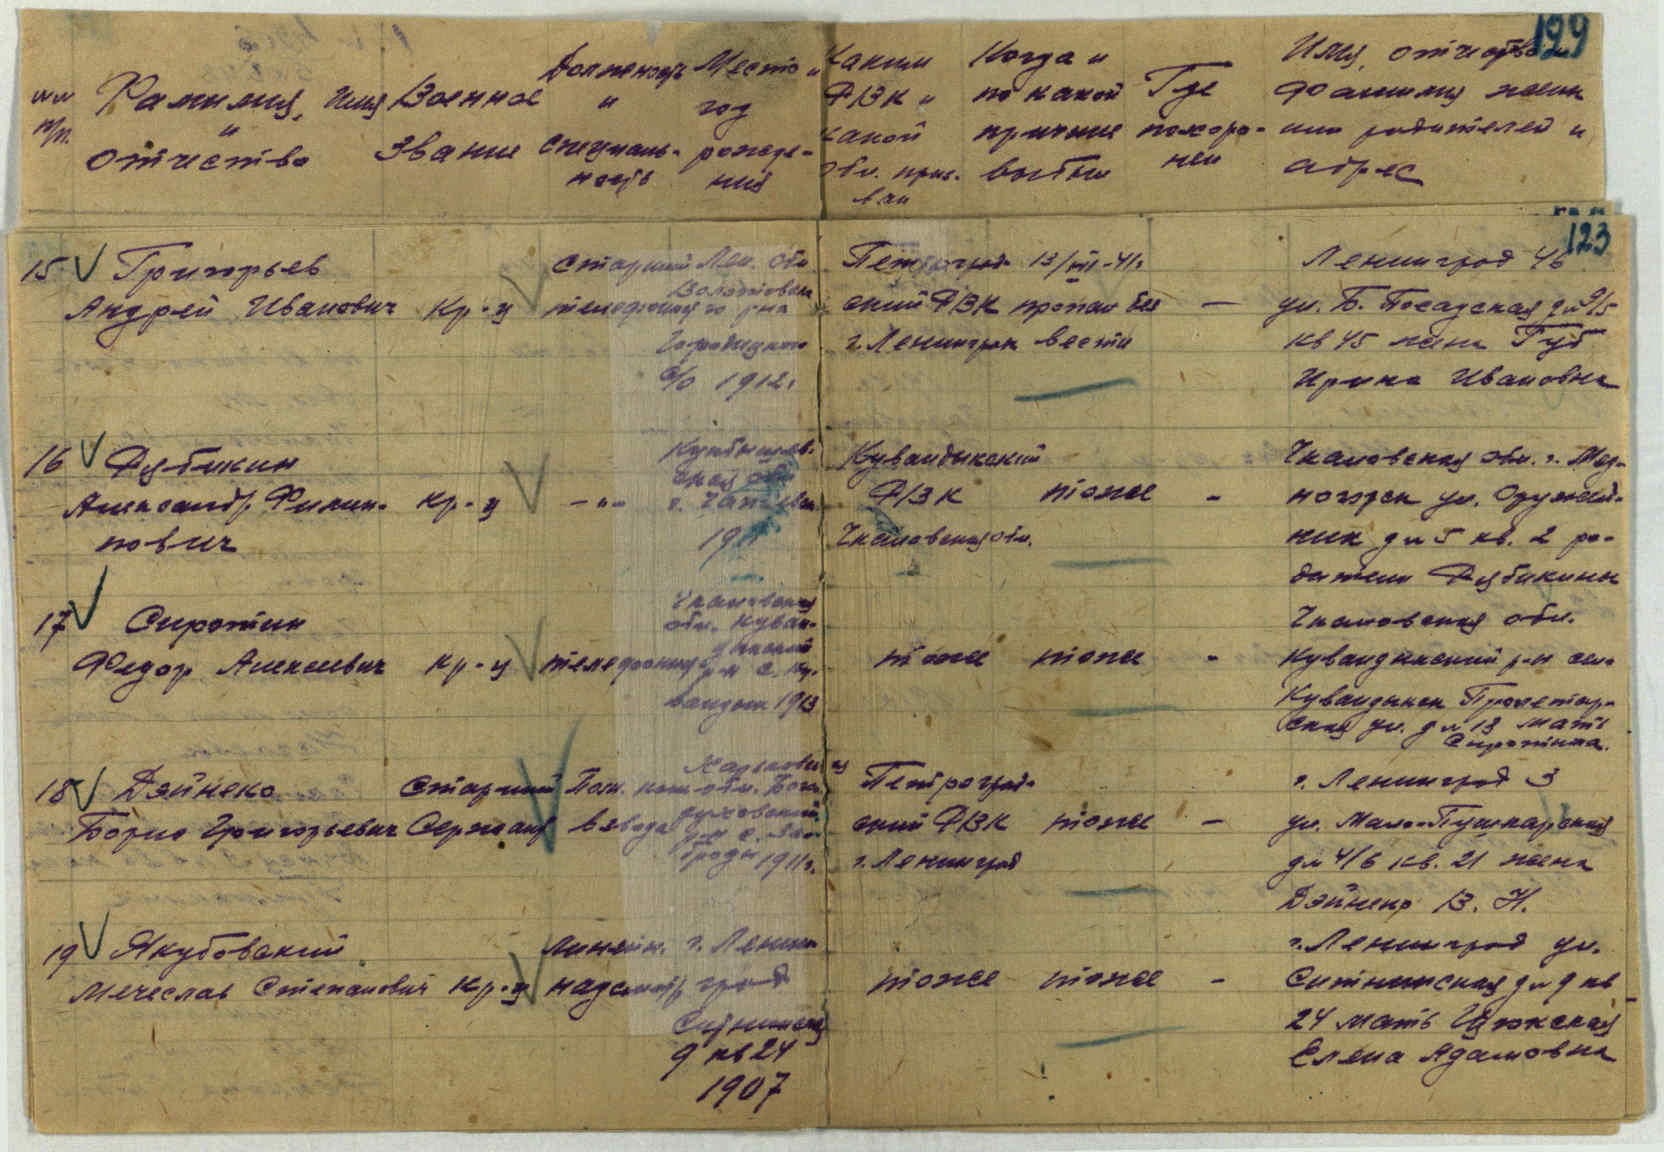 129
№№ п/п.
Фамилия, Имя и отчество
Военное звание
Должность и специальность
Место и год рождения
Каким РВК и какой обл. призван
Когда и по какой причине выбыл
Где похоронен
Имя, отчество и фамилия жены или родителей и адрес
123
15 Григорьев
Андрей Иванович
кр-ц
Старший
телефонист
Лен. обл
р-на
с/о 1912г
Петроград-
ский РВК
г. Ленинград
13/VII-41г
пропал без
вести
—
Ленинград 46
ул. Б. Посадская д № 9/5
кв 45 жена Гуд
Ирина Ивановна
16 Дубикин
Александр Филип-
пович
кр-ц
-"-
ская обл
191
Кувандыкский
РВК
Чкаловская обл.
тоже
-
Чкаловская обл. г. Мед-
ногорск ул.
д № 5 кв. 2 ро-
дители Дубикины
17 Сиротин
Федор Алексеевич
кр-ц
телефонист
Чкаловская
обл. Куван-
дыкский
р-н с. Ку-
вандык 1913
тоже
тоже
-
Чкаловская обл.
Кувандыкский р-н ст.
Кувандыкск Пролетар-
ская ул. д № 13 мать
Сиротина.
18 Дэйнеко
Борис Григорьевич
Старший
Сержант
Пом. ком.
взвода
Харьковская
обл. Бого-
духовский
р-н с.
1911г.
Петроград-
ский РВК
г. Ленинград
тоже
—
г. Ленинград 3
ул. Мало-Пушкарская
д № 4/6 кв. 21 жена
Дэйнеко В. Н.
19 Якубовский
Мечеслав Степанович
кр-ц
Линейн.
надсмотр
г. Ленин
град
Сытнинская
9 кв 24
1907
тоже
тоже
-
г. Ленинград ул.
Сытнинская д № 9 кв
24 мать
Елена Адамовна